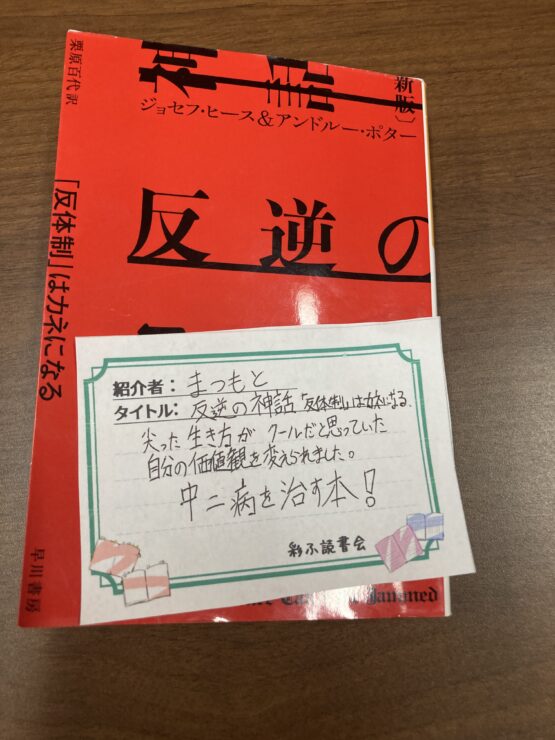 新版〕
ジョセフ・ヒース&アンドルー・ポター
栗原百代訳
反逆の
「反体制」はカネになる
早川書房
紹介者：まつもと
タイトル：反逆の神話「反体制」はカネになる.
尖った生き方がクールだと思っていた
自分の価値観を変えられました。
中二病を治す本！
彩ふ読書会